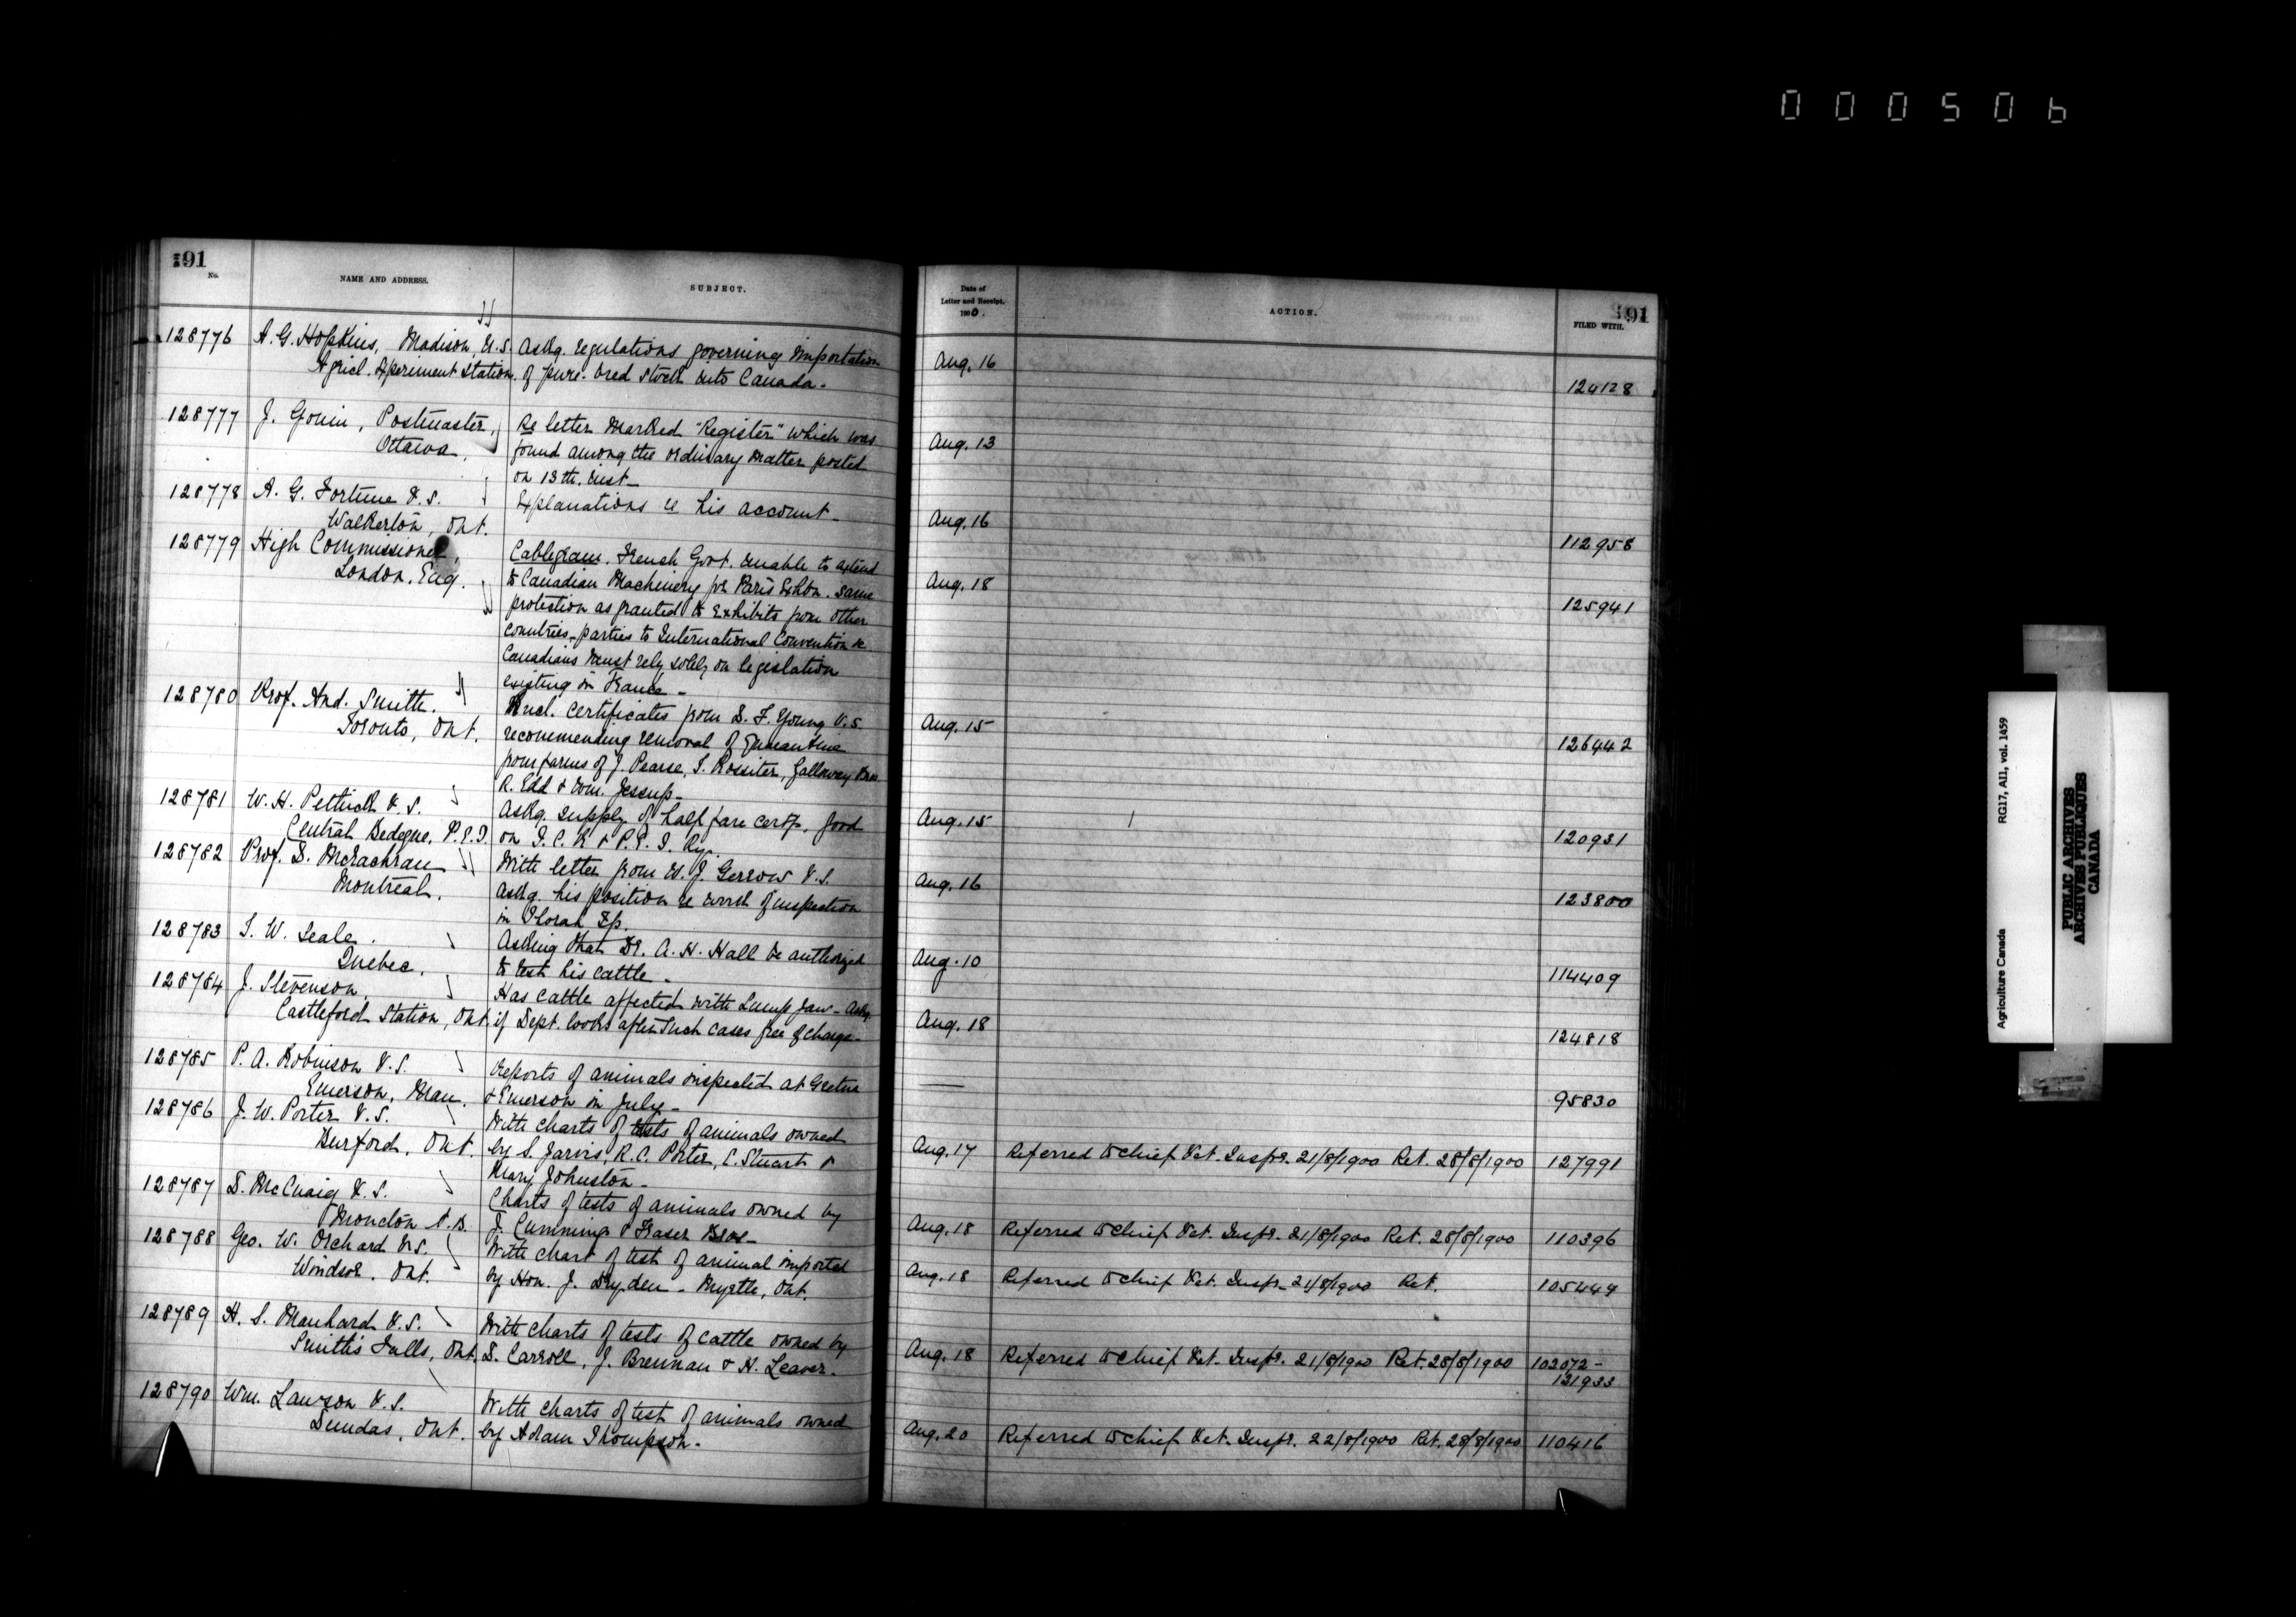 000506
191
No.
NAME AND ADDRESS.
SUBJECT.
128776 A. G. Hopkins, Madison, U.S. Askg. regulations governing importation
Agricl. Experiment Station. of pure-bred stock into Canada.
128777 J. Gouin, Postmaster, Re letter marked "Register" which was
Ottawa. found among the ordinary matter posted
on 13th. inst_
128778 A. G. Fortune V.S. Explanations re his account_
Walkerton, Ont.
128779 High Commissioner, Cablegram. French Govt. unable to extend
London, Eng. to Canadian Machinery for Paris Exhbn. same
protection as granted to Exhibits from other
countries, parties to International Convention &
Canadians must rely solely on legislation
existing in France_
128780 Prof. And. Smith. Encl. certificates from S. F. Young V.S.
Toronto, Ont. recommending removal of Quarantine
from farms of J. Pearse, T. Rossiter, Galloway Bros
R. Edd & Wm. Jessup_
128781 W. H. Pethick V.S. Askg. supply of half fare certfs. good
Central Bedeque, P.E.I. on I.C.R & P.E.I. Ry.
128782 Prof. D. McEachran With letter from W. J. Gerrow V.S.
Montreal. Askg. his position re work of inspection
in Thorah Tp.
128783 T. W. Seale. Asking that Dr. A. H. Hall be authorized
Quebec. to test his cattle_
128784 J. Stevenson. Has cattle affected with Lump Jaw_ Askg.
Castleford Station, Ont. if Dept. looks after such cases free of charge_
128785 P. A. Robinson V.S. Reports of animals inspected at Gretna
Emerson, Man. & Emerson in July_
128786 J. W. Porter V.S. With charts of tests of animals owned
Burford, Ont. by S. Jarvis, R. C. Porter, C. Stuart &
Mary Johnston_
128787 D. McCuaig V.S. Charts of tests of animals owned by
Moncton N.B. J. Cumming & Fraser Bros_
128788 Geo. W. Orchard V.S. With chart of test of animal imported
Windsor. Ont. by Hon. J. Dryden - Myrtle, Ont.
128789 H. S. Manhard V.S. With charts of tests of cattle owned by
Smith's Falls, Ont. D. Carroll, J. Brennan & H. Leaver.
128790 Wm. Lawson V.S. With charts of test of animals owned
Dundas, Ont. by Adam Thompson.
Date of
Letter and Receipt.
1900.
ACTION.
191
FILED WITH.
Aug. 16 124128
Aug. 13
Aug. 16 112958
Aug. 18 125941
Aug. 15 126442
Aug. 15 120931
Aug. 16 123800
Aug. 10 114409
Aug. 18 124818
95830
Aug. 17 Referred to Chief Vet. Inspr. 21/8/1900 Ret. 28/8/1900 127991
Aug. 18 Referred to Chief Vet. Inspr. 21/8/1900 Ret. 28/8/1900 110396
Aug. 18 Referred to Chief Vet. Inspr. 21/8/1900 Ret. 105449
Aug. 18 Referred to Chief Vet. Inspr. 21/8/1900 Ret. 28/8/1900 102072-
121933
Aug. 20 Referred to Chief Vet. Inspr. 22/8/1900 Ret. 28/8/1900 110416
Agriculture Canada RG17, AII, vol. 1459
PUBLIC ARCHIVES
ARCHIVES PUBLIQUES
CANADA